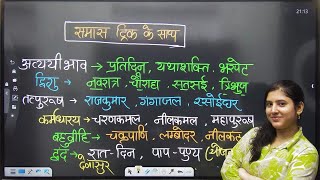 समास ट्रिक के साथ
21:13
अव्ययीभाव → प्रतिदिन, यथाशक्ति, भरपेट
द्विगु → नवरात्र, चौराहा, सतसई, त्रिभुज
तत्पुरुष → राजकुमार, गंगाजल, रसोईघर
कर्मधारय → चरणकमल, नीलकमल, महापुरुष
बहुव्रीहि → चक्रपाणि, लम्बोदर, नीलकं
द्वंद → रात-दिन, पाप-पुण्य